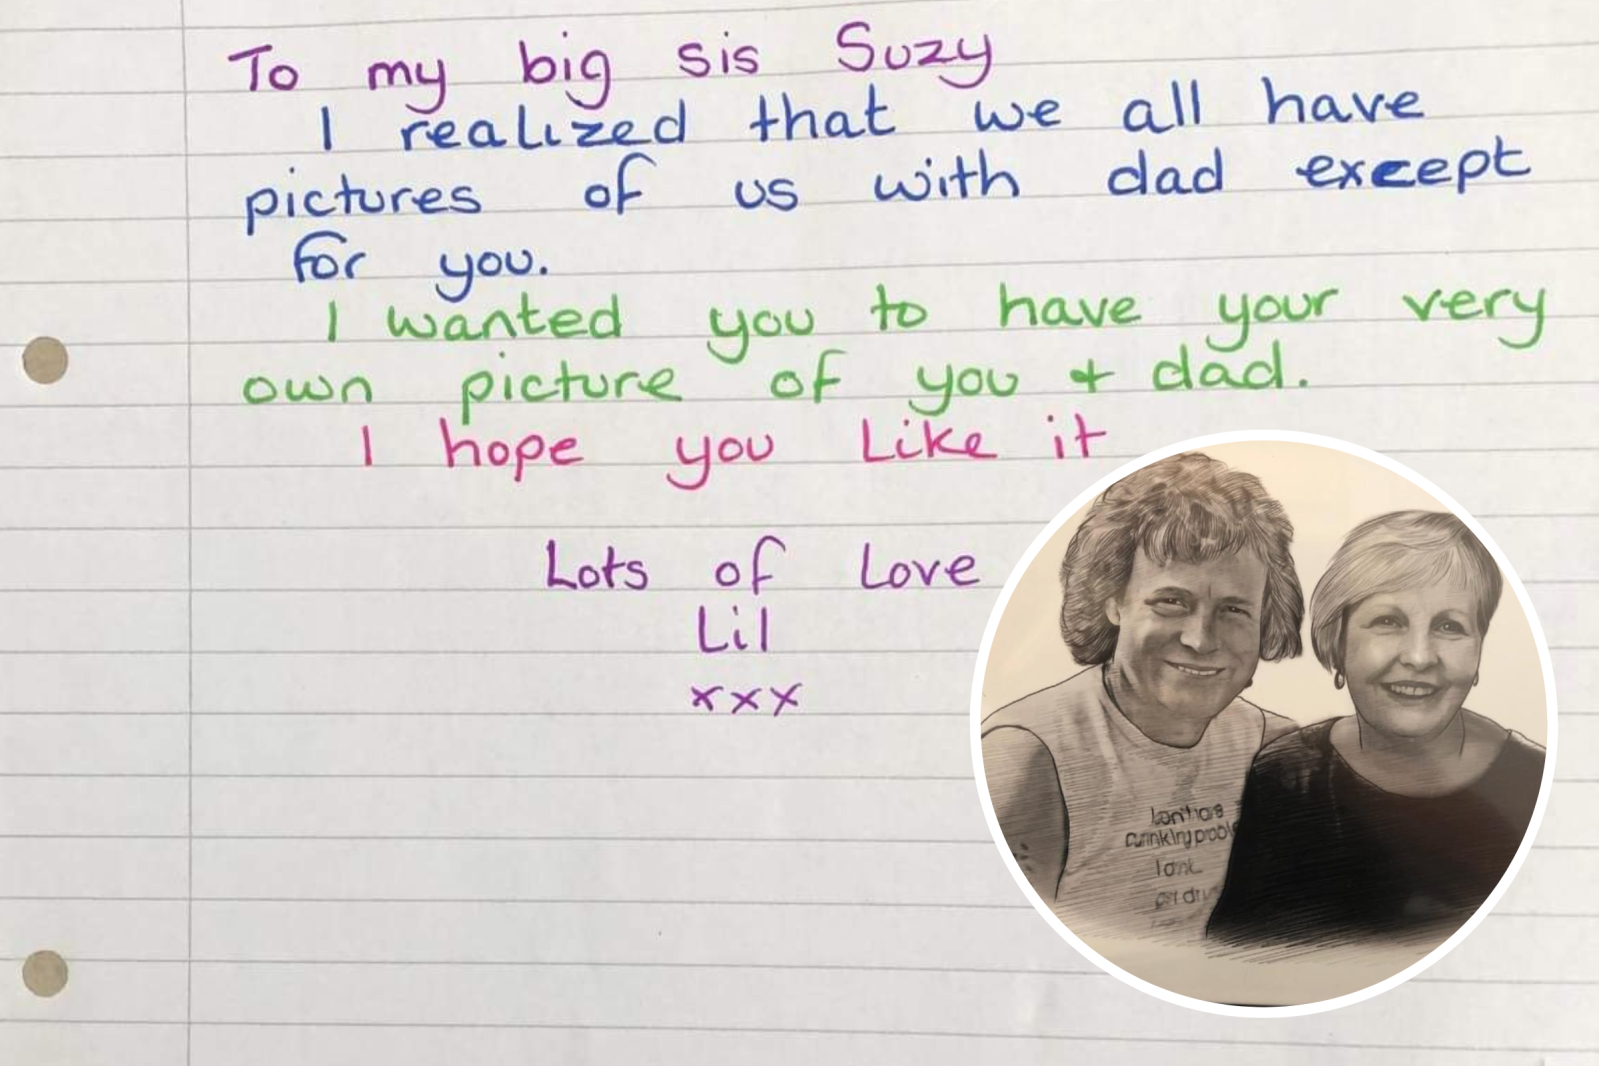 To my big sis Suzy
I realized that we all have
pictures of us with dad except
for you.
I wanted you to have your very
own picture of you + dad.
I hope you like it
Lots of Love
Lil
xxx